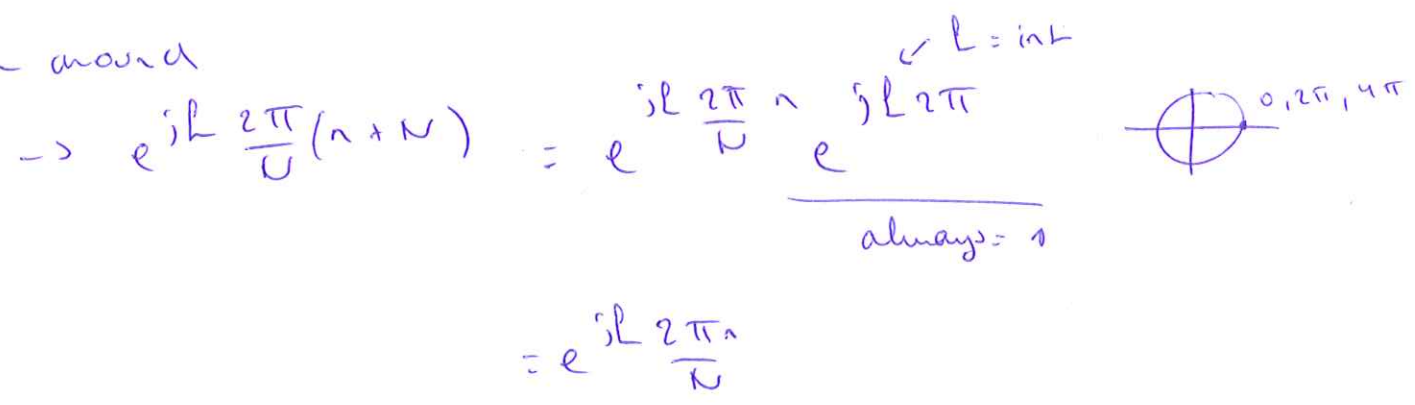 - around
↙ k = int
→ e^{jk 2π/N (n+N)} = e^{jk 2π/N n} e^{jk2π}
0, 2π, 4π
always = 1
= e^{jk 2πn/N}